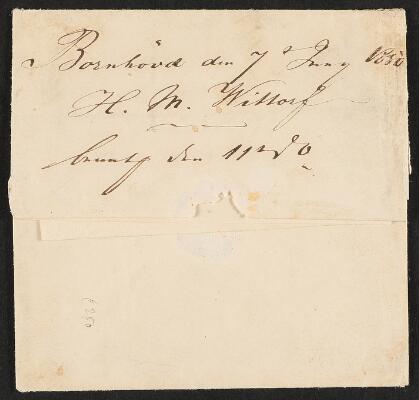 Bornhöved den 7t Juny 1850
H. M. Wittorf
beantw den 11t do